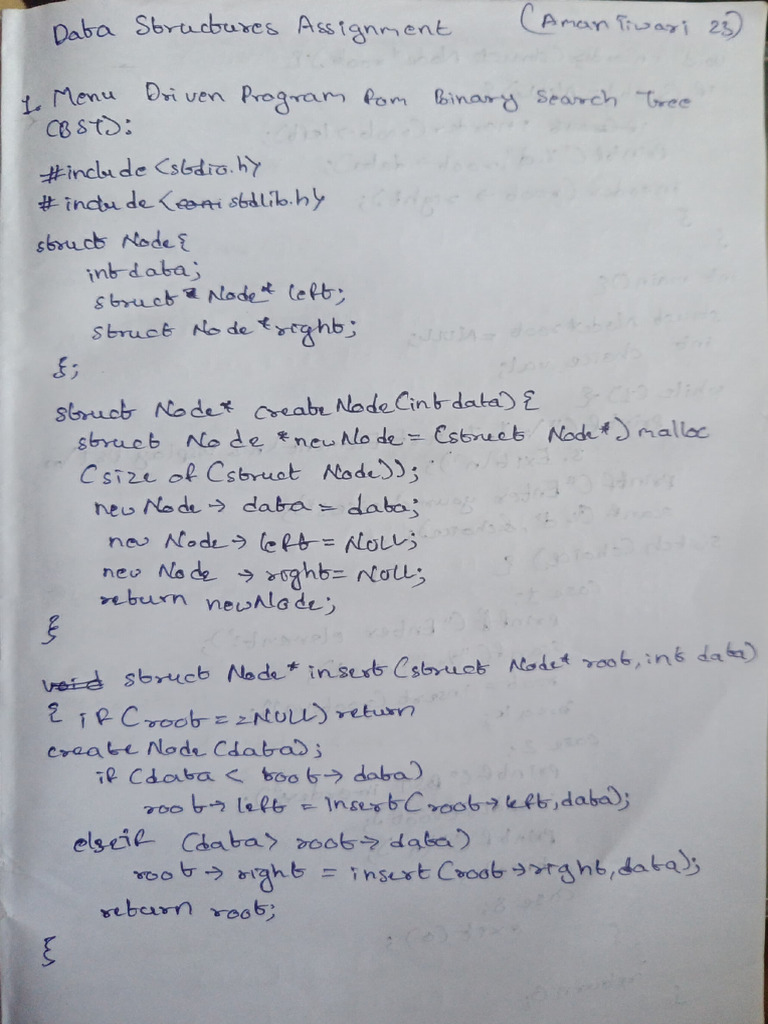 Data Structures Assignment (Aman Tiwari 23)
1. Menu Driven Program for Binary Search Tree
(BST):
#include <stdio.h>
#include <stdlib.h>
struct Node{
int data;
struct Node* left;
struct Node *right;
};
struct Node* createNode(int data) {
struct Node *newNode = (struct Node*) malloc
(size of (struct Node));
newNode → data = data;
new Node → left = NULL;
new Node → right = NULL;
return newNode;
}
struct Node* insert (struct Node* root, int data)
{ if (root == NULL) return
create Node (data);
if (data < root → data)
root → left = insert (root → left, data);
elseif (data > root → data)
root → right = insert (root → right, data);
return root;
}